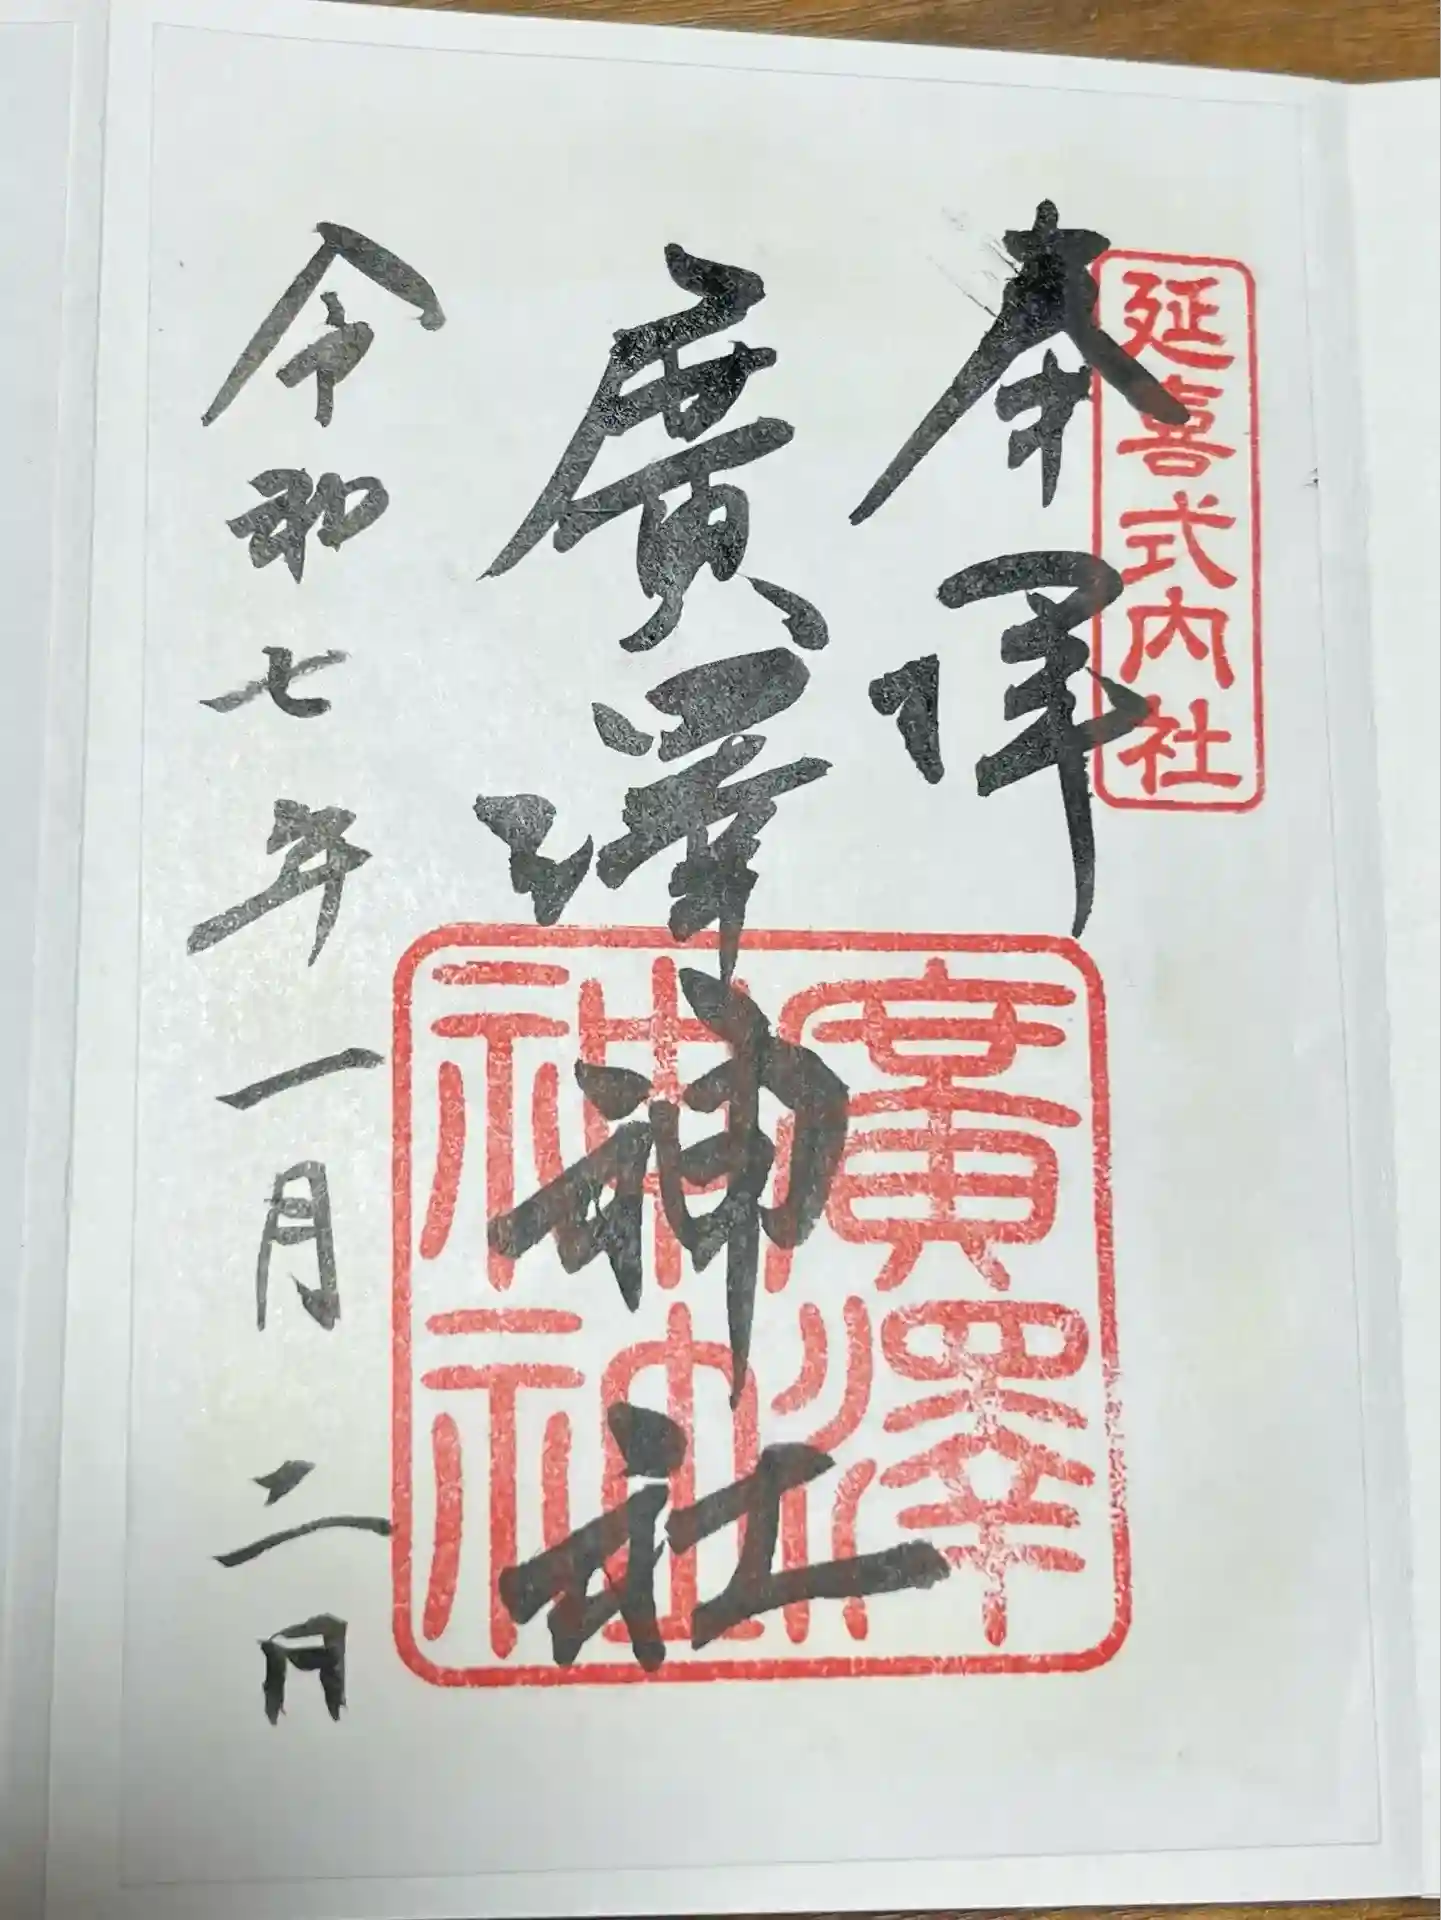 延喜式内社
奉拝
廣澤神社
廣澤
神社
令和七年一月二日